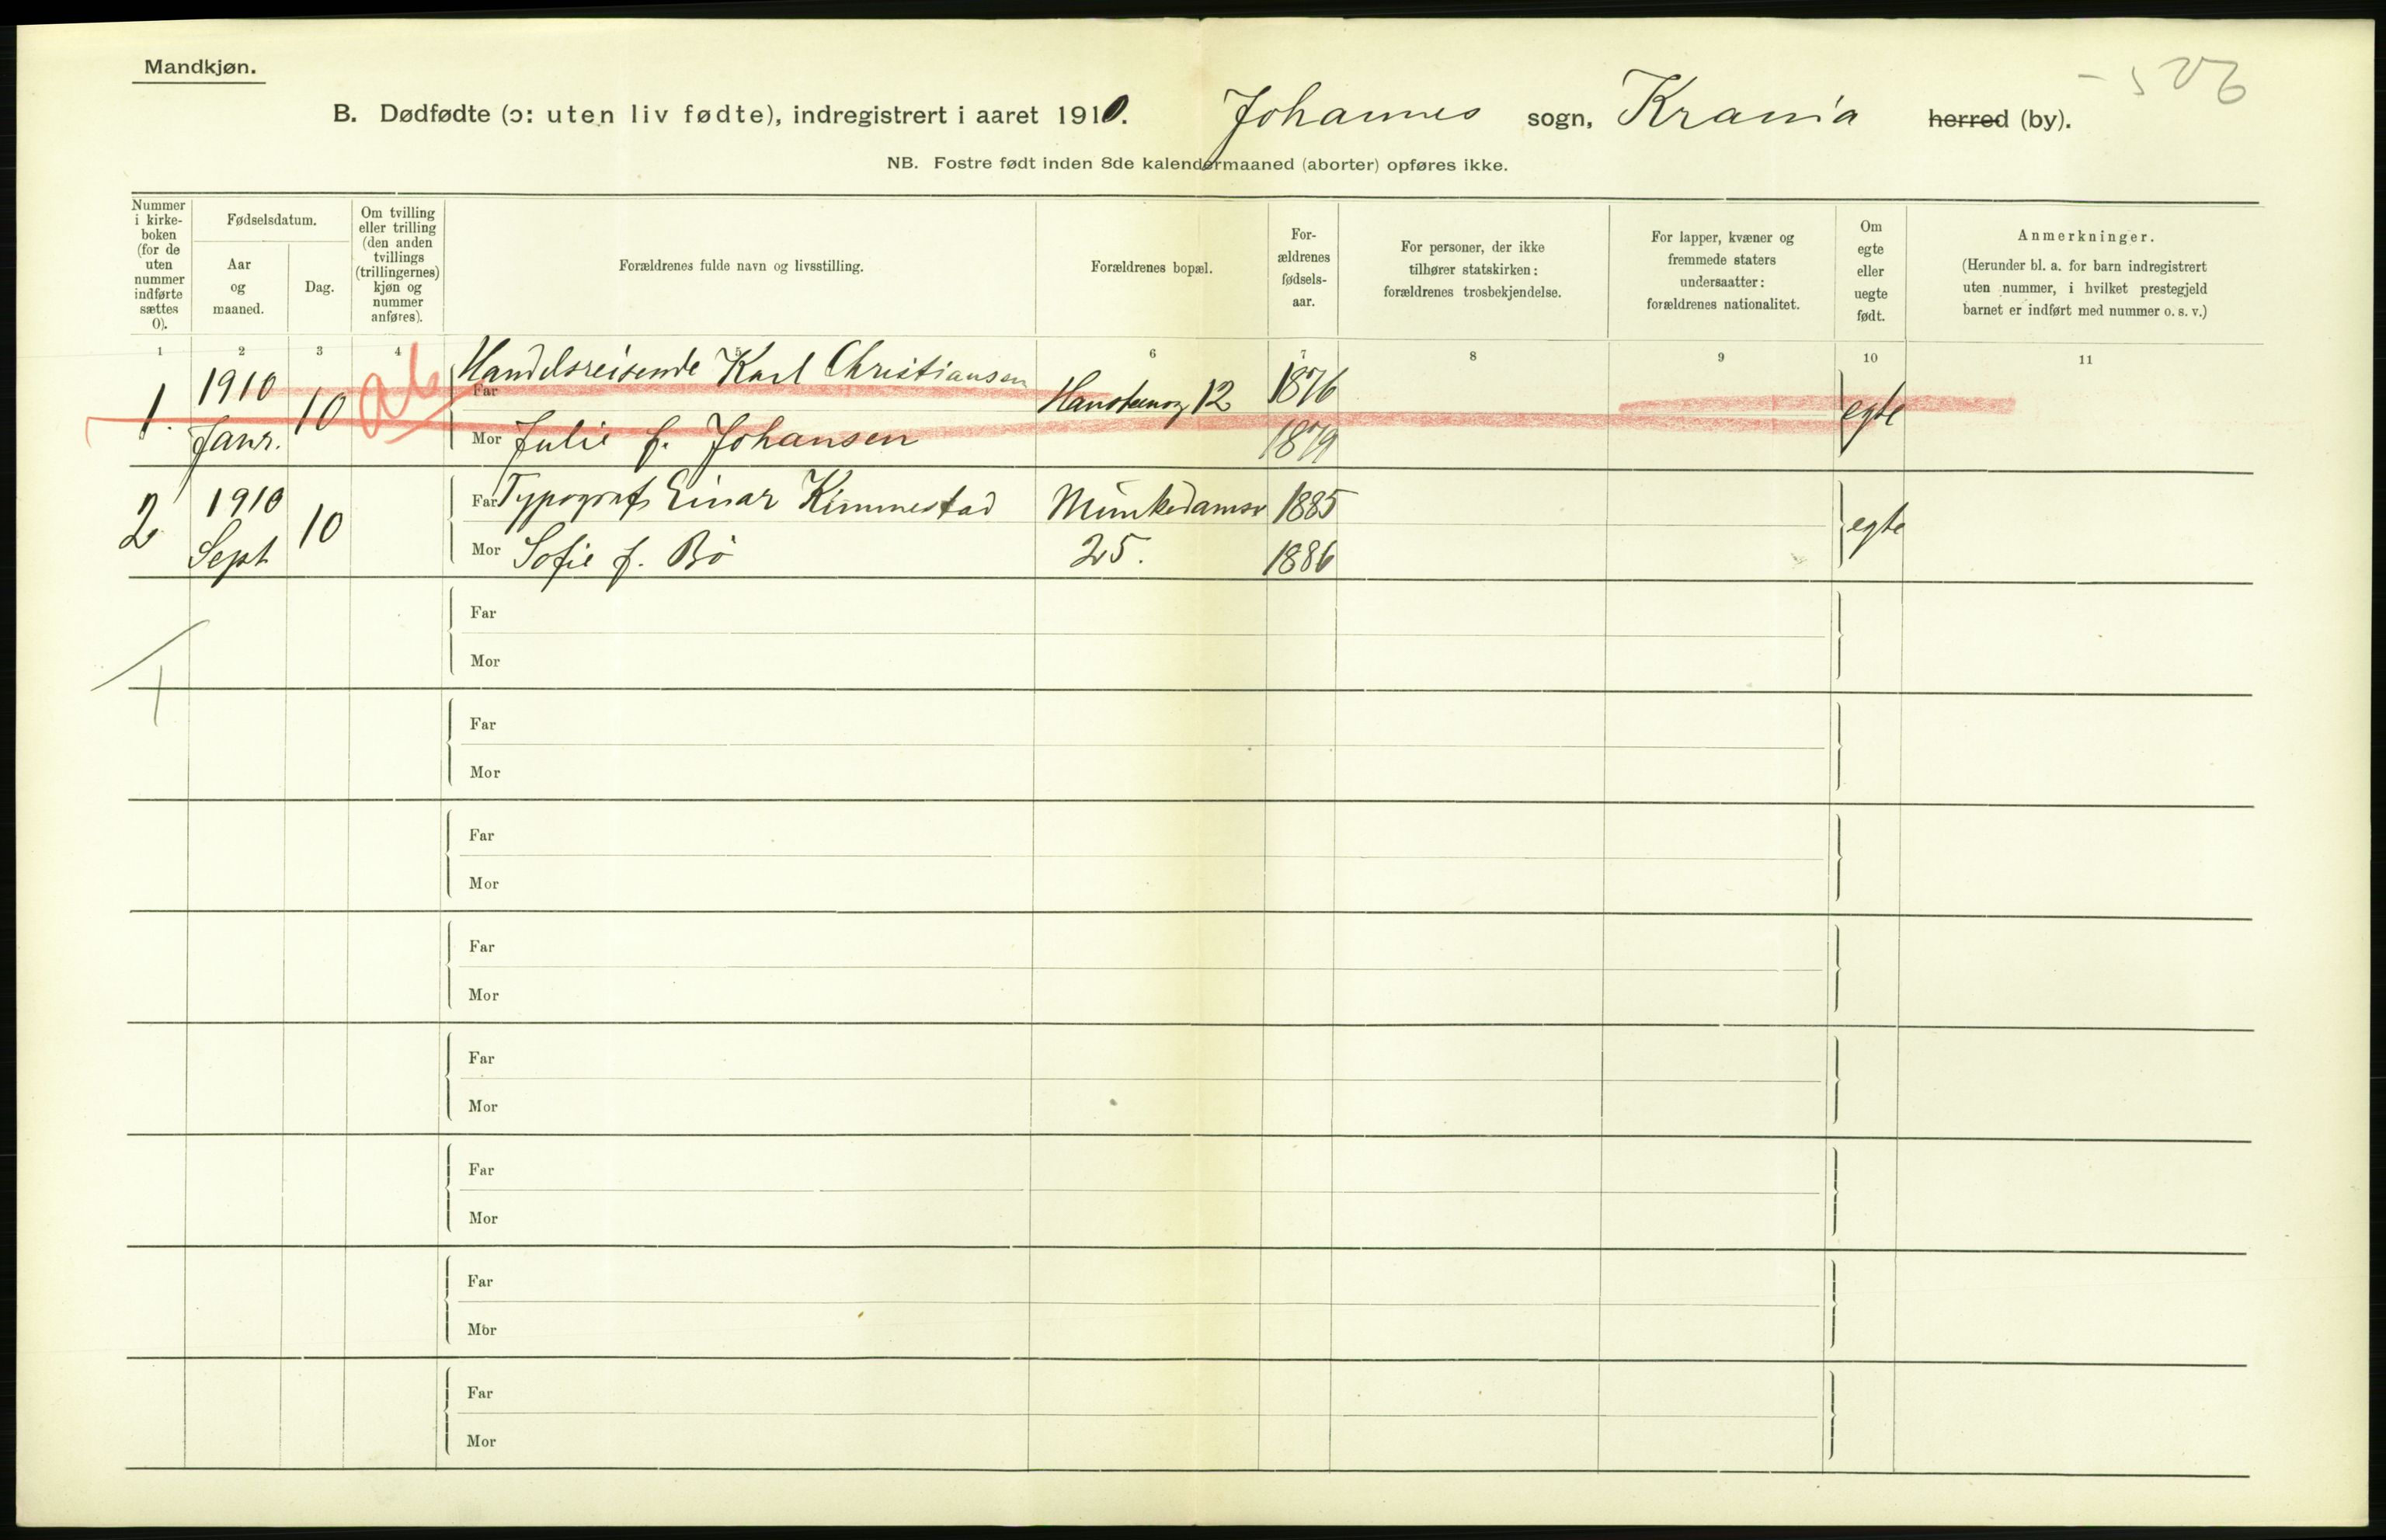 Mandkjøn.
- 526
B. Dødfødte (ɔ: uten liv fødte), indregistrert i aaret 1910. Johannes sogn, Krania herred (by).
NB. Fostre født inden 8de kalendermaaned (aborter) opføres ikke.
Nummer i kirke-boken (for de uten nummer indførte sættes 0).
Fødselsdatum.
Aar og maaned.
Dag.
Om tvilling eller trilling (den anden tvillings (trillingernes) kjøn og nummer anføres).
Forældrenes fulde navn og livsstilling.
Forældrenes bopæl.
For-ældrenes fødsels-aar.
For personer, der ikke tilhører statskirken: forældrenes trosbekjendelse.
For lapper, kvæner og fremmede staters undersaatter: forældrenes nationalitet.
Om egte eller uegte født.
Anmerkninger.
(Herunder bl. a. for barn indregistrert uten nummer, i hvilket prestegjeld barnet er indført med nummer o. s. v.)
1 2 3 4 5 6 7 8 9 10 11
1. 1910 Janr. 10 ab Far Handelsreisende Karl Christiansen 12 1876 egte
Mor Julie f. Johansen 1879
2 1910 Sept 10 Far Typograf Einar Kimmestad Munkedamsv 1885 egte
Mor Sofie f. Bö 25. 1886
Far
Mor
Far
Mor
Far
Mor
Far
Mor
Far
Mor
Far
Mor
Far
Mor
Far
Mor